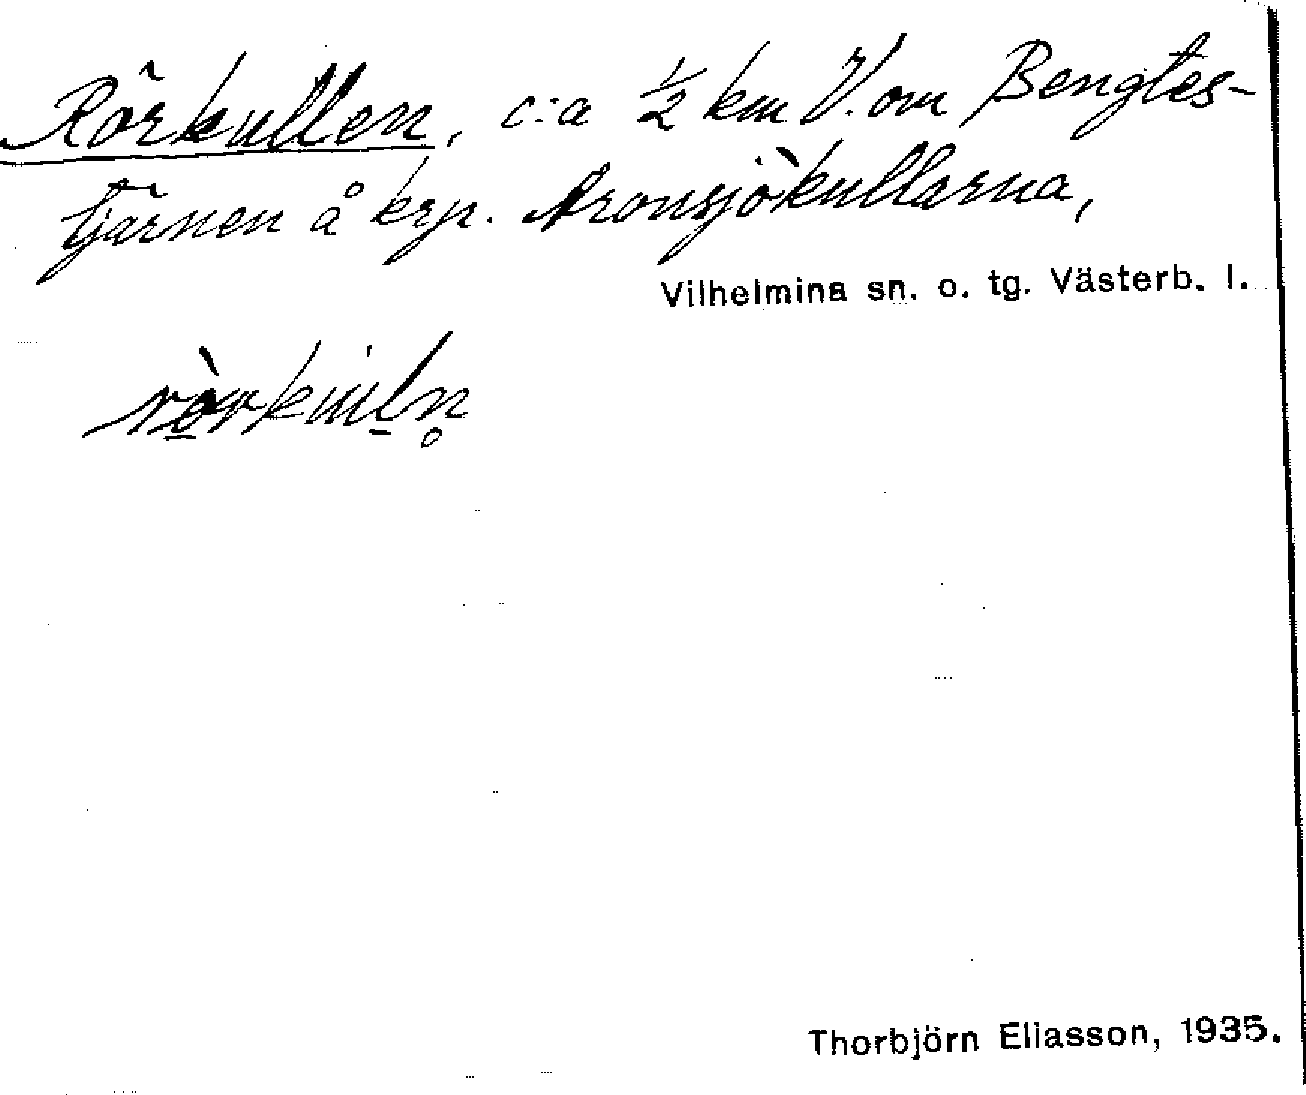 Rörkullen, c:a ½ km V. om Bengtes-
tjärnen å krp. Aronsjökullarna,
Vilhelmina sn. o. tg. Västerb. l.
Thorbjörn Eliasson, 1935.